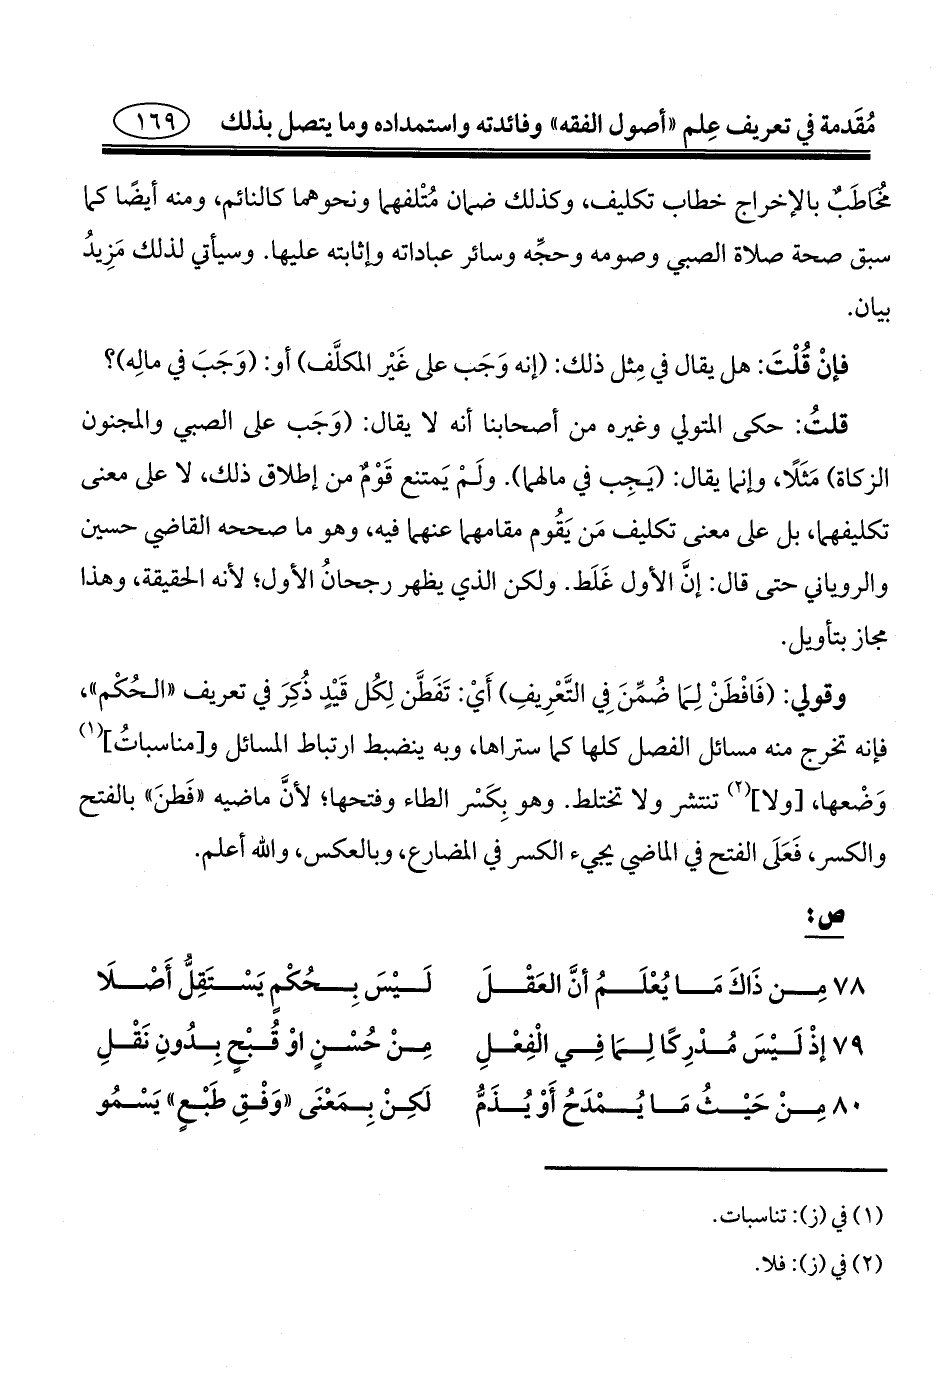 مُقَدمة في تعريف عِلم «أصول الفقه» وفائدته واستمداده وما يتصل بذلك ١٦٩
مُخَاطَبٌ بالإخراج خطاب تكليف، وكذلك ضمان مُتْلفهما ونحوهما كالنائم، ومنه أيضًا كما
سبق صحة صلاة الصبي وصومه وحجِّه وسائر عباداته وإثابته عليها. وسيأتي لذلك مَزِيدُ
بيان.
فإنْ قُلْتَ: هل يقال في مِثل ذلك: (إنه وَجَب على غَيْر المكلَّف) أو: (وَجَبَ في مالِه)؟
قلتُ: حكى المتولي وغيره من أصحابنا أنه لا يقال: (وَجَب على الصبي والمجنون
الزكاة) مَثَلًا، وإنما يقال: (يَجِب في مالهما). ولَمْ يَمتنع قَوْمٌ من إطلاق ذلك، لا على معنى
تكليفهما، بل على معنى تكليف مَن يَقُوم مقامهما عنهما فيه، وهو ما صححه القاضي حسين
والروياني حتى قال: إنَّ الأول غَلَط. ولكن الذي يظهر رجحانُ الأول؛ لأنه الحقيقة، وهذا
مجاز بتأويل.
وقولي: (فَافْطَنْ لِمَا ضُمِّنَ فِي التَّعْرِيفِ) أَيْ: تَفَطَّن لِكُل قَيْدٍ ذُكِرَ في تعريف «الـحُكْم»،
فإنه تخرج منه مسائل الفصل كلها كما ستراها، وبه ينضبط ارتباط المسائل و[مناسباتُ](١)
وَضْعها، [ولا](٢) تنتشر ولا تختلط. وهو بِكَسْر الطاء وفتحها؛ لأنَّ ماضيه «فَطنَ» بالفتح
والكسر، فَعَلَى الفتح في الماضي يجيء الكسر في المضارع، وبالعكس، والله أعلم.
ص:
٧٨ مِـــن ذَاكَ مَـــا يُعْلَــمُ أنَّ العَقْـــلَ لَـــيْسَ بِـــحُكْمٍ يَسْـــتَقِلُّ أَصْـــلَا
٧٩ إذْ لَـــيْسَ مُـــدْرِكًا لِـــمَا فِـــي الْفِعْـــلِ مِـــنْ حُسْـــنٍ اوْ قُـــبْحٍ بِـــدُونِ نَقْـــلِ
٨٠ مِـــنْ حَيْـــثُ مَـــا يُـــمْدَحُ أَوْ يُـــذَمُّ لَكِـــنْ بِـــمَعْنَى «وَفْـــقِ طَبْـــعٍ» يَسْـــمُو
(١) في (ز): تناسبات.
(٢) في (ز): فلا.